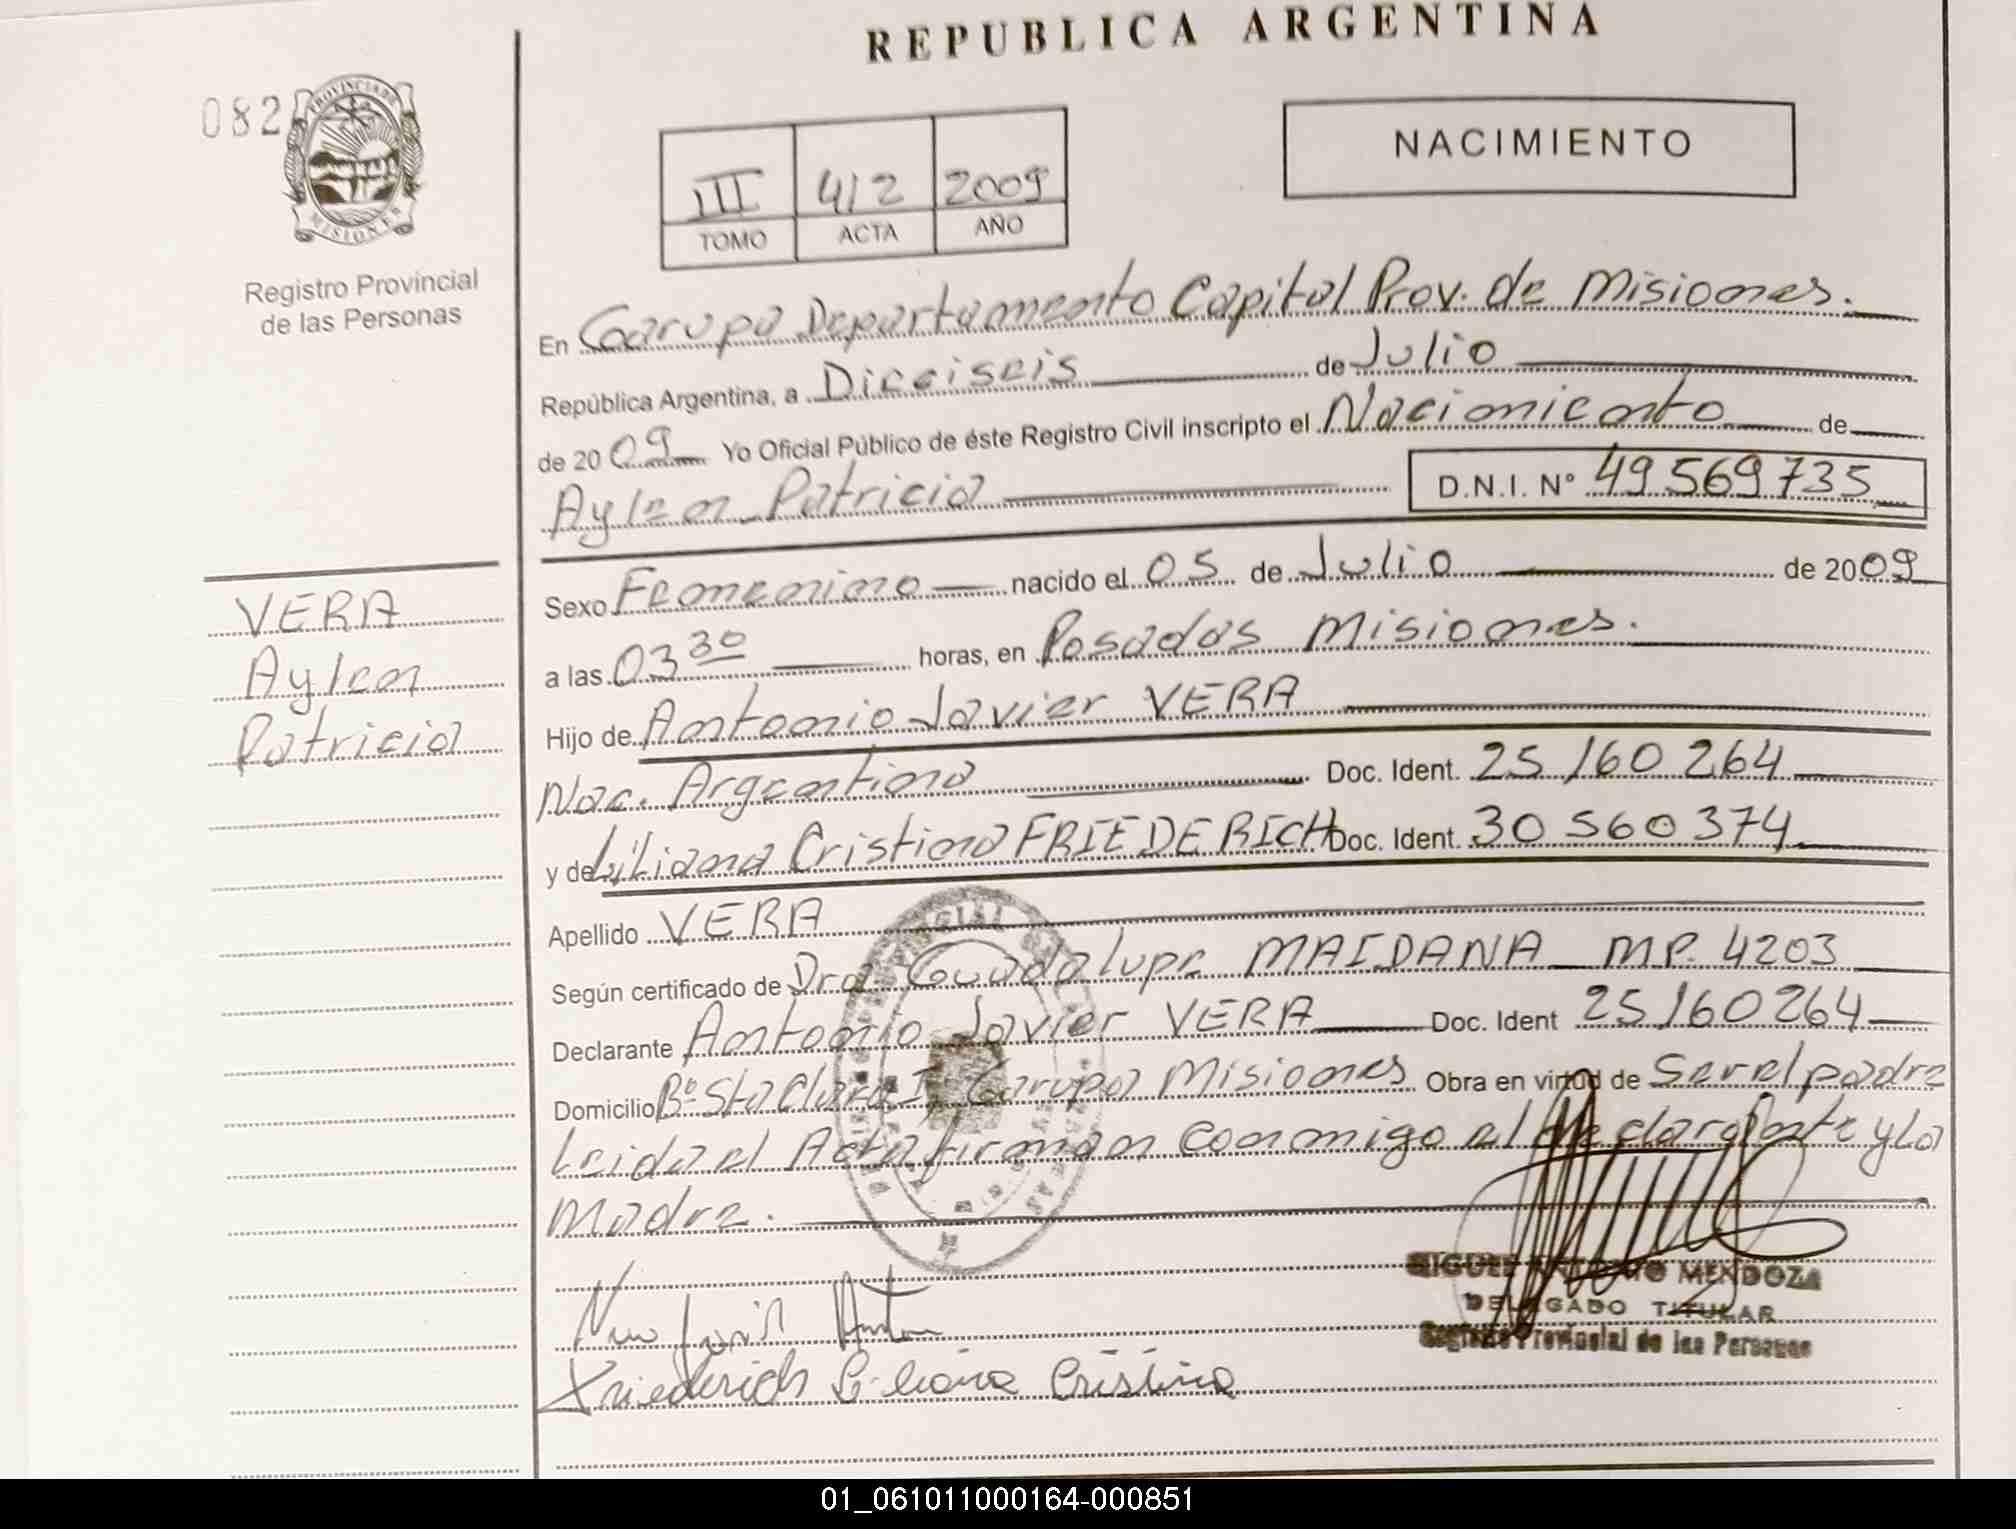 REPUBLICA ARGENTINA
082
PROVINCIA DE MISIONES
Registro Provincial
de las Personas
III 412 2009
TOMO ACTA AÑO
NACIMIENTO
En Garupa Departamento Capital Prov. de Misiones.
República Argentina, a Dieciseis de Julio
de 20 09 Yo Oficial Público de éste Registro Civil inscripto el Nacimiento de
Aylen Patricia D.N.I. Nº 49 569 735
VERA
Aylen
Patricia
Sexo Femenino nacido el 05 de Julio de 2009
a las 03 30 horas, en Posadas Misiones.
Hijo de Antonio Javier VERA
Nac. Argentina Doc. Ident. 25 160 264
y de Liliana Cristina FRIEDERICH Doc. Ident. 30 560 374
Apellido VERA
Según certificado de Dra Guadalupe MAIDANA MP. 4203
Declarante Antonio Javier VERA Doc. Ident 25 160 264
Domicilio Bº Sta Clara I, Garupa Misiones Obra en virtud de Ser el padre
Leida el Acta firman conmigo el declarante y La
Madre.
MIGUEL ANTONIO MENDOZA
DELEGADO TITULAR
Registro Provincial de las Personas
Friederich Liliana Cristina
01_061011000164-000851